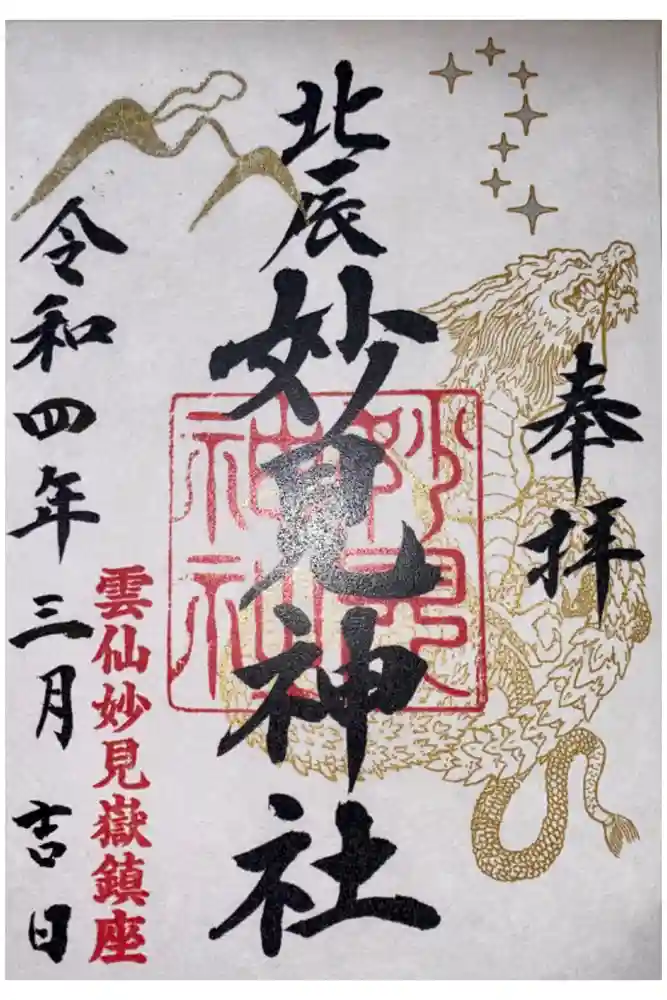 奉拝
北辰妙見神社
妙見
神社
雲仙妙見嶽鎮座
令和四年三月吉日